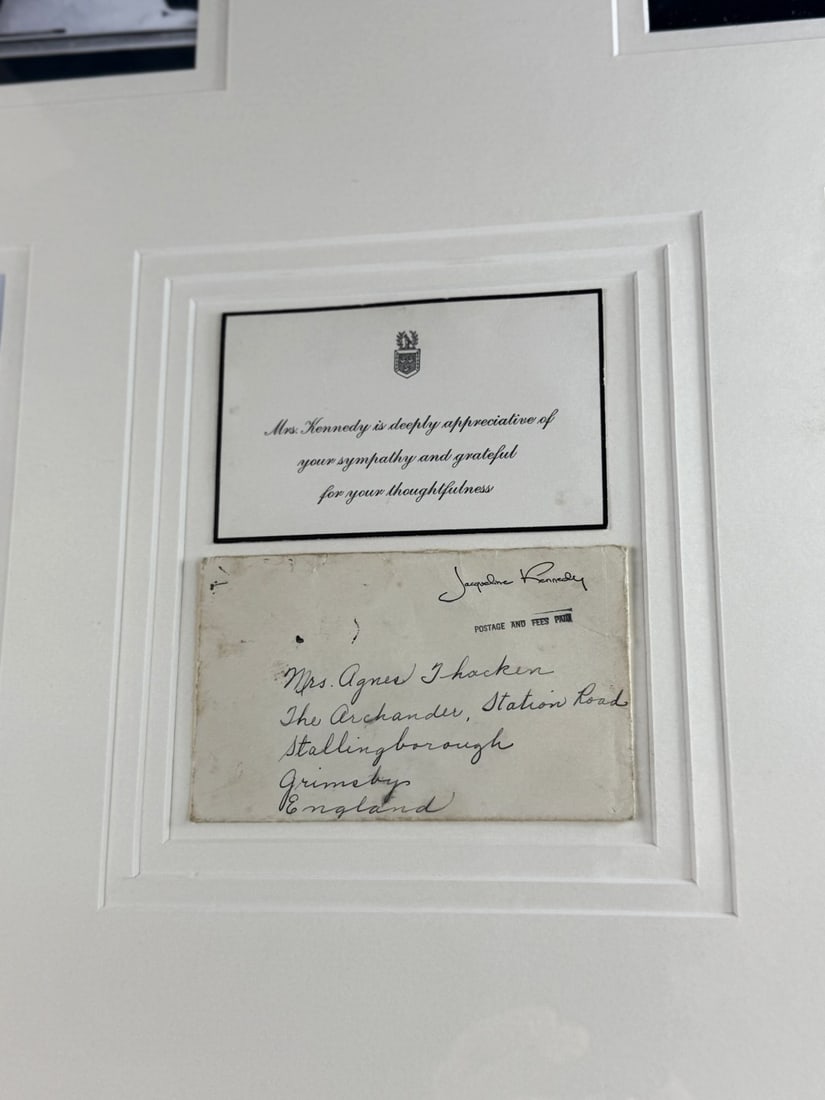 Mrs. Kennedy is deeply appreciative of
your sympathy and grateful
for your thoughtfulness
Jacqueline Kennedy
POSTAGE AND FEES PAID
Mrs. Agnes Thacken
The Archander, Station Road
Stallingborough
Grimsby
England